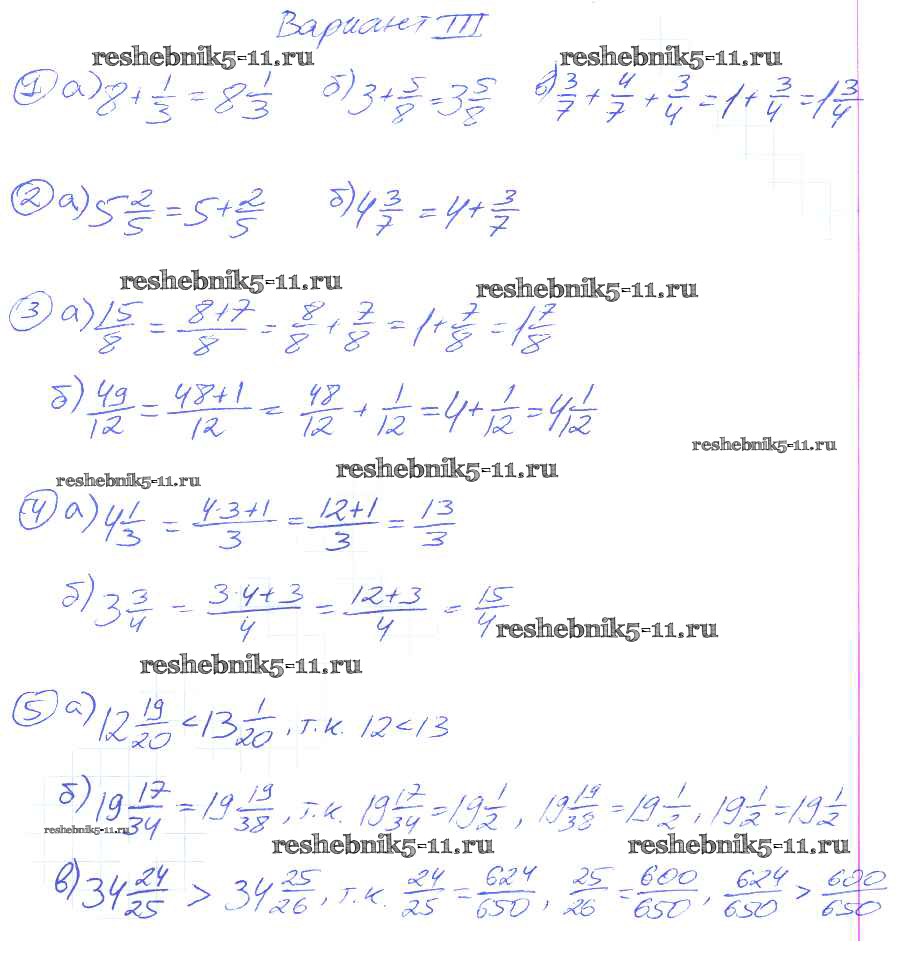 Вариант III
reshebnik5-11.ru reshebnik5-11.ru
① а) 8 + 1/3 = 8 1/3 б) 3 + 5/8 = 3 5/8 в) 3/7 + 4/7 + 3/4 = 1 + 3/4 = 1 3/4
② а) 5 2/5 = 5 + 2/5 б) 4 3/7 = 4 + 3/7
reshebnik5-11.ru reshebnik5-11.ru
③ а) 15/8 = (8+7)/8 = 8/8 + 7/8 = 1 + 7/8 = 1 7/8
б) 49/12 = (48+1)/12 = 48/12 + 1/12 = 4 + 1/12 = 4 1/12
reshebnik5-11.ru
reshebnik5-11.ru reshebnik5-11.ru
④ а) 4 1/3 = (4·3+1)/3 = (12+1)/3 = 13/3
б) 3 3/4 = (3·4+3)/4 = (12+3)/4 = 15/4
reshebnik5-11.ru
reshebnik5-11.ru
⑤ а) 12 19/20 < 13 1/20, т.к. 12 < 13
б) 19 17/34 = 19 19/38, т.к. 19 17/34 = 19 1/2, 19 19/38 = 19 1/2, 19 1/2 = 19 1/2
reshebnik5-11.ru reshebnik5-11.ru reshebnik5-11.ru
в) 34 24/25 > 34 25/26, т.к. 24/25 = 624/650, 25/26 = 600/650, 624/650 > 600/650